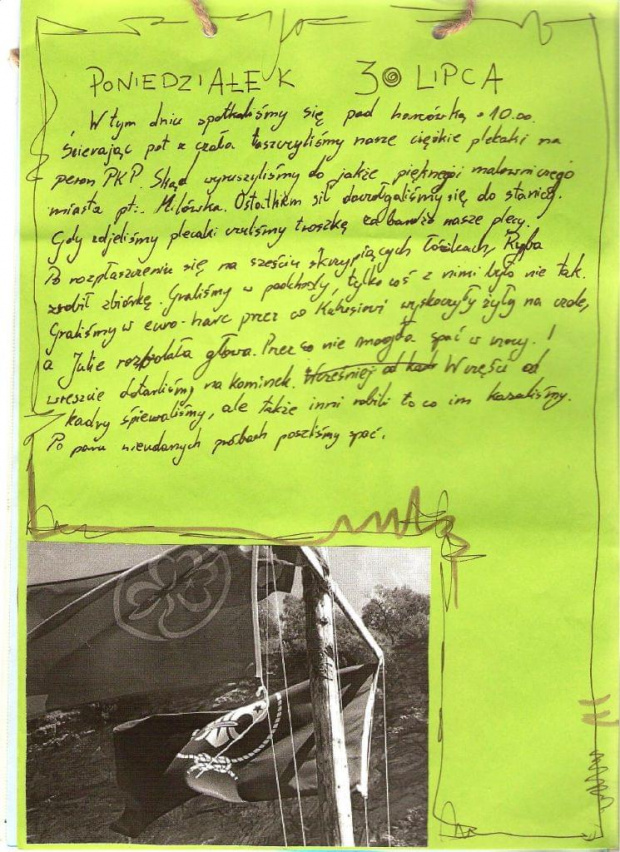 PONIEDZIAŁEK 30 LIPCA
W tym dniu spotkaliśmy się pod harcówką o 10.00.
Ścierając pot z czoła taszczyliśmy nasze ciężkie plecaki na
peron PKP. Skąd wyruszyliśmy do jakże pięknego i malowniczego
miasta pt.: Milówka. Ostatkiem sił doczołgaliśmy się do stanicy.
Gdy zdjeliśmy plecaki czuliśmy troszkę za bardzo nasze plecy.
Po rozpłaszczeniu się na sześciu skrzypiących łóżkach, Ryba
zrobił zbiórkę. Graliśmy w podchody, tylko coś z nimi było nie tak.
Graliśmy w euro-harc przez co wyskoczyły żyły na czole,
a Julię rozbolała głowa. Przez co nie mogła spać w nocy. I
wreszcie dotarliśmy na kominek. Wcześniej od kad W części od
kadry śpiewaliśmy, ale także inni robili to co im kazaliśmy.
Po paru nieudanych próbach poszliśmy spać.